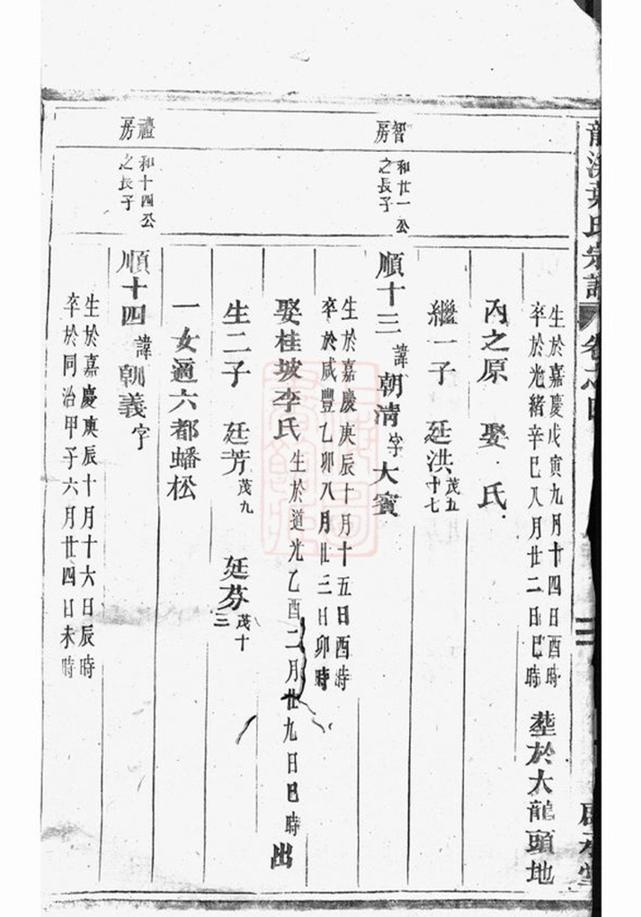 葉氏宗譜 卷之四
生於嘉慶戊寅九月十四日酉時
卒於光緒辛巳八月廿二日巳時 塟於大龍頭地
內之原 娶 氏
繼一子 廷洪茂五十七
智房 和廿一公之長子
順十三 諱朝淸字大賓
生於嘉慶庚辰十月十五日酉時
卒於咸豐乙卯八月廿三日卯時
娶桂坡李氏 生於道光乙酉二月廿九日巳時 出
生二子 廷芳茂九 廷芬茂十三
一女適六都蟠松
禮房 和十四公之長子
順十四 諱朝義字
生於嘉慶庚辰十月十六日辰時
卒於同治甲子六月廿四日未時